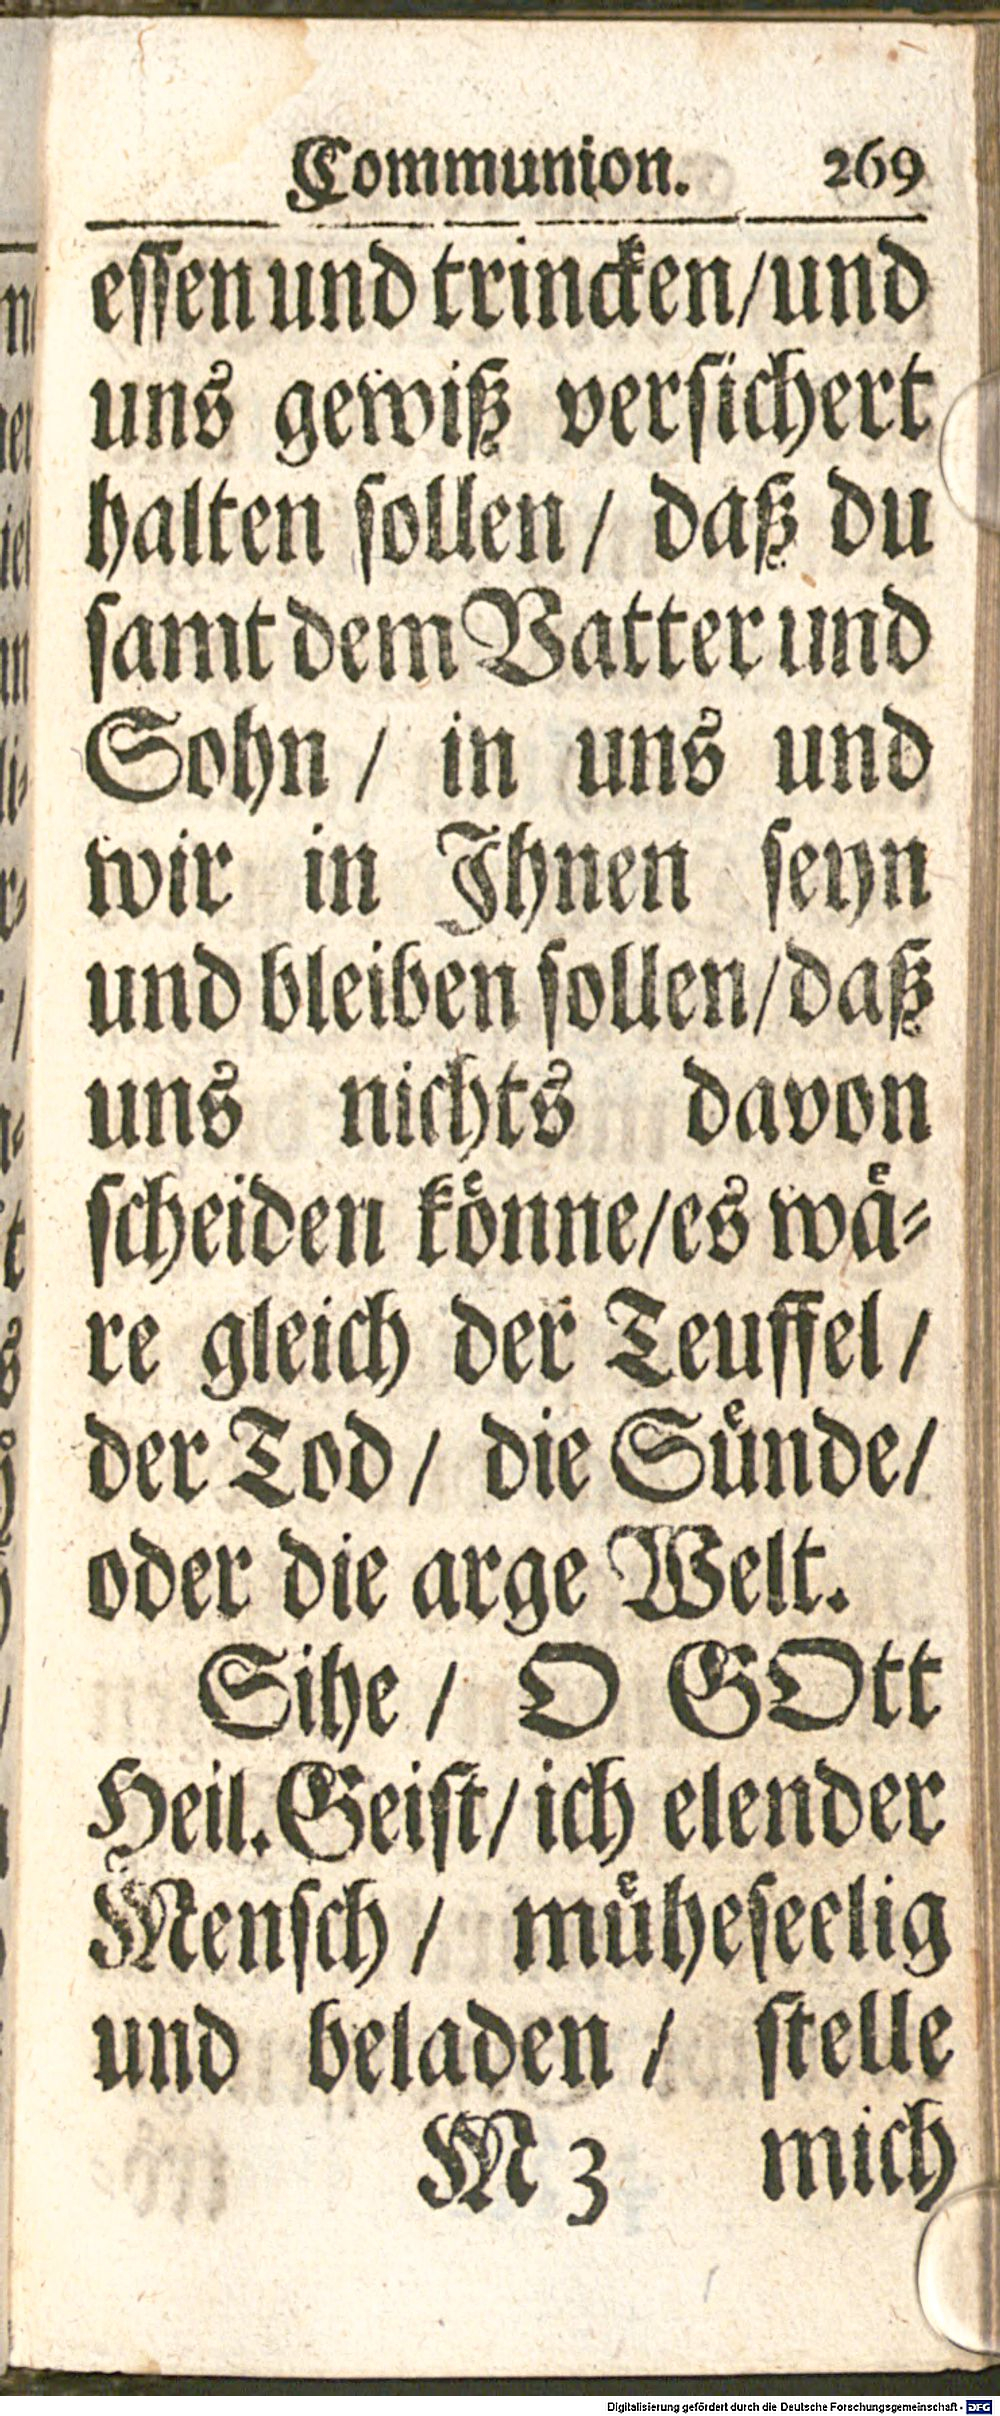 Communion. 269
eſſen und trincken/und
uns gewiß verſichert
halten ſollen/ daß du
ſamt dem Vatter und
Sohn/ in uns und
wir in Jhnen ſeyn
und bleiben ſollen/daß
uns nichts davon
ſcheiden koͤnne/es waͤ⸗
re gleich der Teuffel/
der Tod/ die Suͤnde/
oder die arge Welt.
Sihe/ O GOtt
Heil. Geiſt/ich elender
Menſch/ muͤheſeelig
und beladen/ ſtelle
M 3 mich
Digitalisierung gefördert durch die Deutsche Forschungsgemeinschaft - DFG